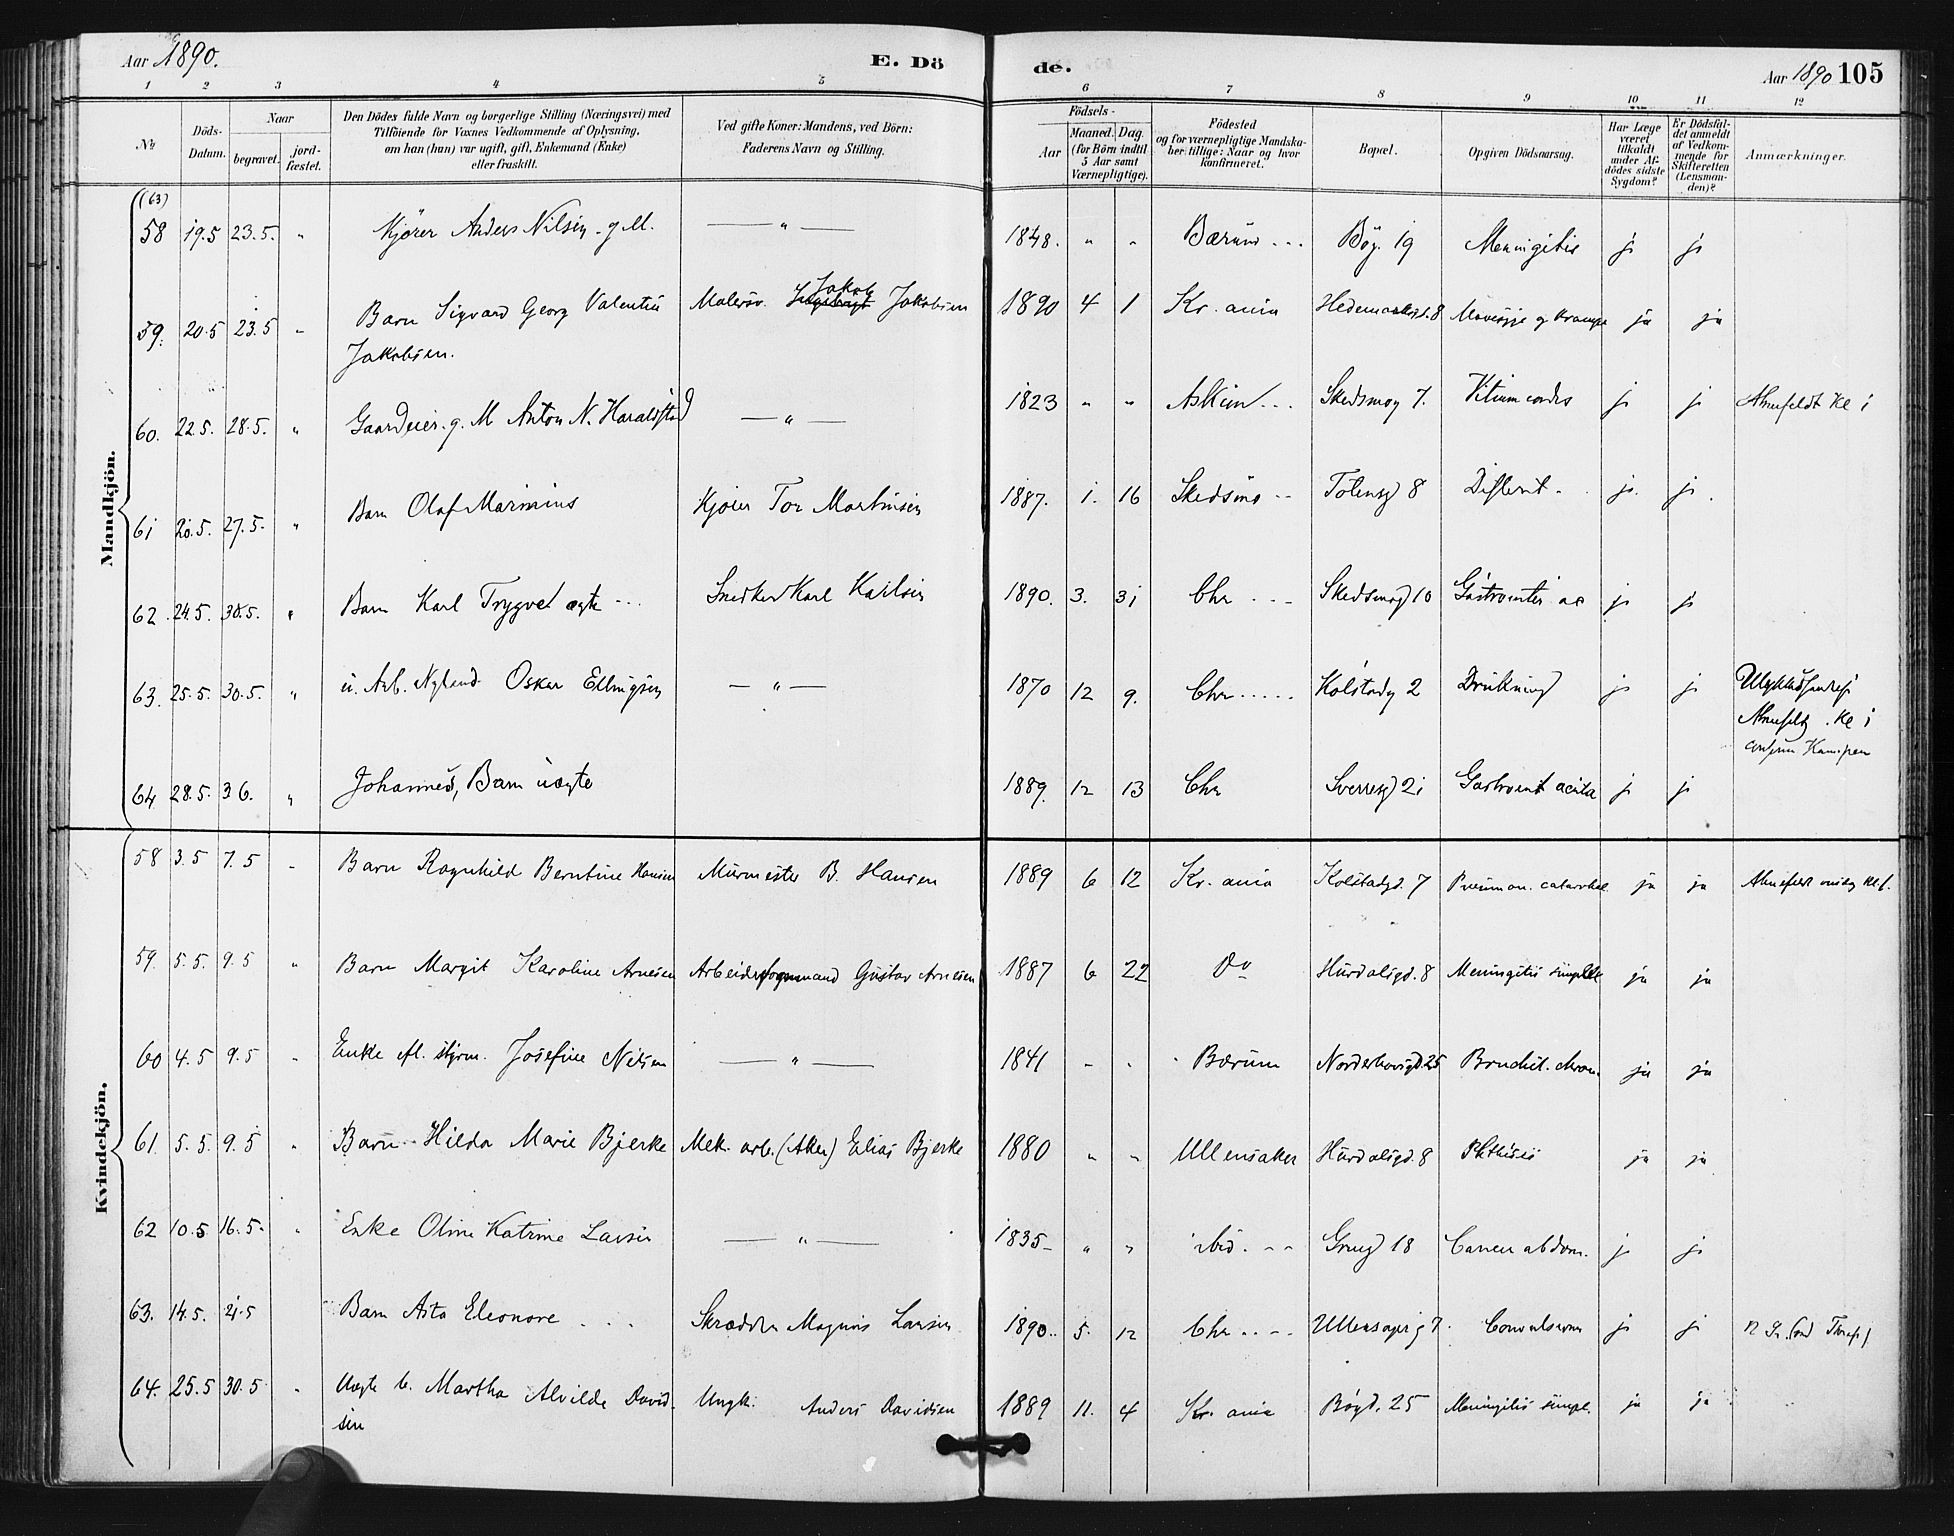 Aar 1890.
E. Dö
de.
Aar 1890 105
1 2 3 4 5 6 7 8 9 10 11 12
No
Döds-Datum.
Naar
begravet.
jord-fæstet.
Den Dödes fulde Navn og borgerlige Stilling (Næringsvei) med
Tilföiende for Voxnes Vedkommende af Oplysning,
om han (hun) var ugift, gift, Enkemand (Enke)
eller fraskilt.
Ved gifte Koner: Mandens, ved Börn:
Faderens Navn og Stilling.
Födsels-
Aar
Maaned. Dag.
(for Börn indtil
5 Aar samt
Værnepligtige).
Födested
og for værnepligtige Mandska-
ber tillige: Naar og hvor
konfirmeret.
Bopæl.
Opgiven Dödsaarsag.
Har Læge
været
tilkaldt
under Af-
dödes sidste
Sygdom?
Er Dödsfal-
det anmeldt
af Vedkom-
mende for
Skifteretten
(Lensman-
den)?
Anmærkninger.
Mandkjön.
(63)
58 19.5 23.5. " Kjörer Anders Nilsen - g M. — " — 1848. " " Bærum Bög. 19 Meningitis j j
59. 20.5 23.5 " Barn Sigvard Georg Valentin Malersv. Jakob Jakobsen 1890 4 1 Kr. ania Hedemarksgd. 8 og Krampe ja ja
Jakobsen.
60. 22.5. 28.5. " Gaardeier. g. M Anton N. Haraldstad — " — 1823 " " Askim Skedsmog 7. Vitium cordis j j Ahnefeldt Kl i
61 20.5. 27.5. " Barn Olaf Marinius Kjörer Tor Martinsen 1887. 1. 16 Skedsmo Totensg 8 Difterit j. j.
62 24.5. 30.5. " Barn Karl Trygve ægte Snedker Karl Karlsen 1890. 3. 31 Chr Skedsmog 10 j j
63. 25.5. 30.5. " u. Arb. Nyland Oskar Ellingsen — " — 1870 12 9. Chr Kolstadg 2 Drukning j j
Kl i
64 28.5. 3 6. " Johannes, Barn uægte 1889. 12 13 Chr Sverresg 21 Gastroent acuta j j
Kvindekjön.
58 3.5 7.5 " Barn Ragnhild Berntine Hansen Murmester B. Hansen 1889 6 12 Kr. ania Kolstadgd. 7 Pneumon. catarrhal. ja ja
59. 5.5. 9.5 " Barn Margit Karoline Arnesen Arbeidsformand Gustav Arnesen 1887 6 22 Do Hurdalsgd. 8 Meningitis simplex ja ja
60 4.5 9.5 " Enke af. styrm. Josefine Nilsen — " — 1841 " " Bærum Norderhovsgd. 25 Bronchit. chron. ja ja
61. 5.5. 9.5 " Barn Hilda Marie Bjerke Mek. arb. (Aker) Elias Bjerke 1880 " " Ullensaker Hurdalsgd. 8 Phthisis ja ja
62 10.5 16.5. " Enke Oline Katrine Larsen — " — 1835 " " ibid. Grueg 18 Cancer abdom. j j
63. 14.5. 21.5 Barn Asta Eleonore Skrædder Magnus Larsen 1890. 5. 12 Chr Ullensagerg 7. Convulsiones j j
64. 25.5 30.5 " Uægte b. Martha Alvilde David- Ungk. Anders Davidsen 1889 11. 4 Kr. ania Bögd. 25 Meningitis simpl. ja ja
sen